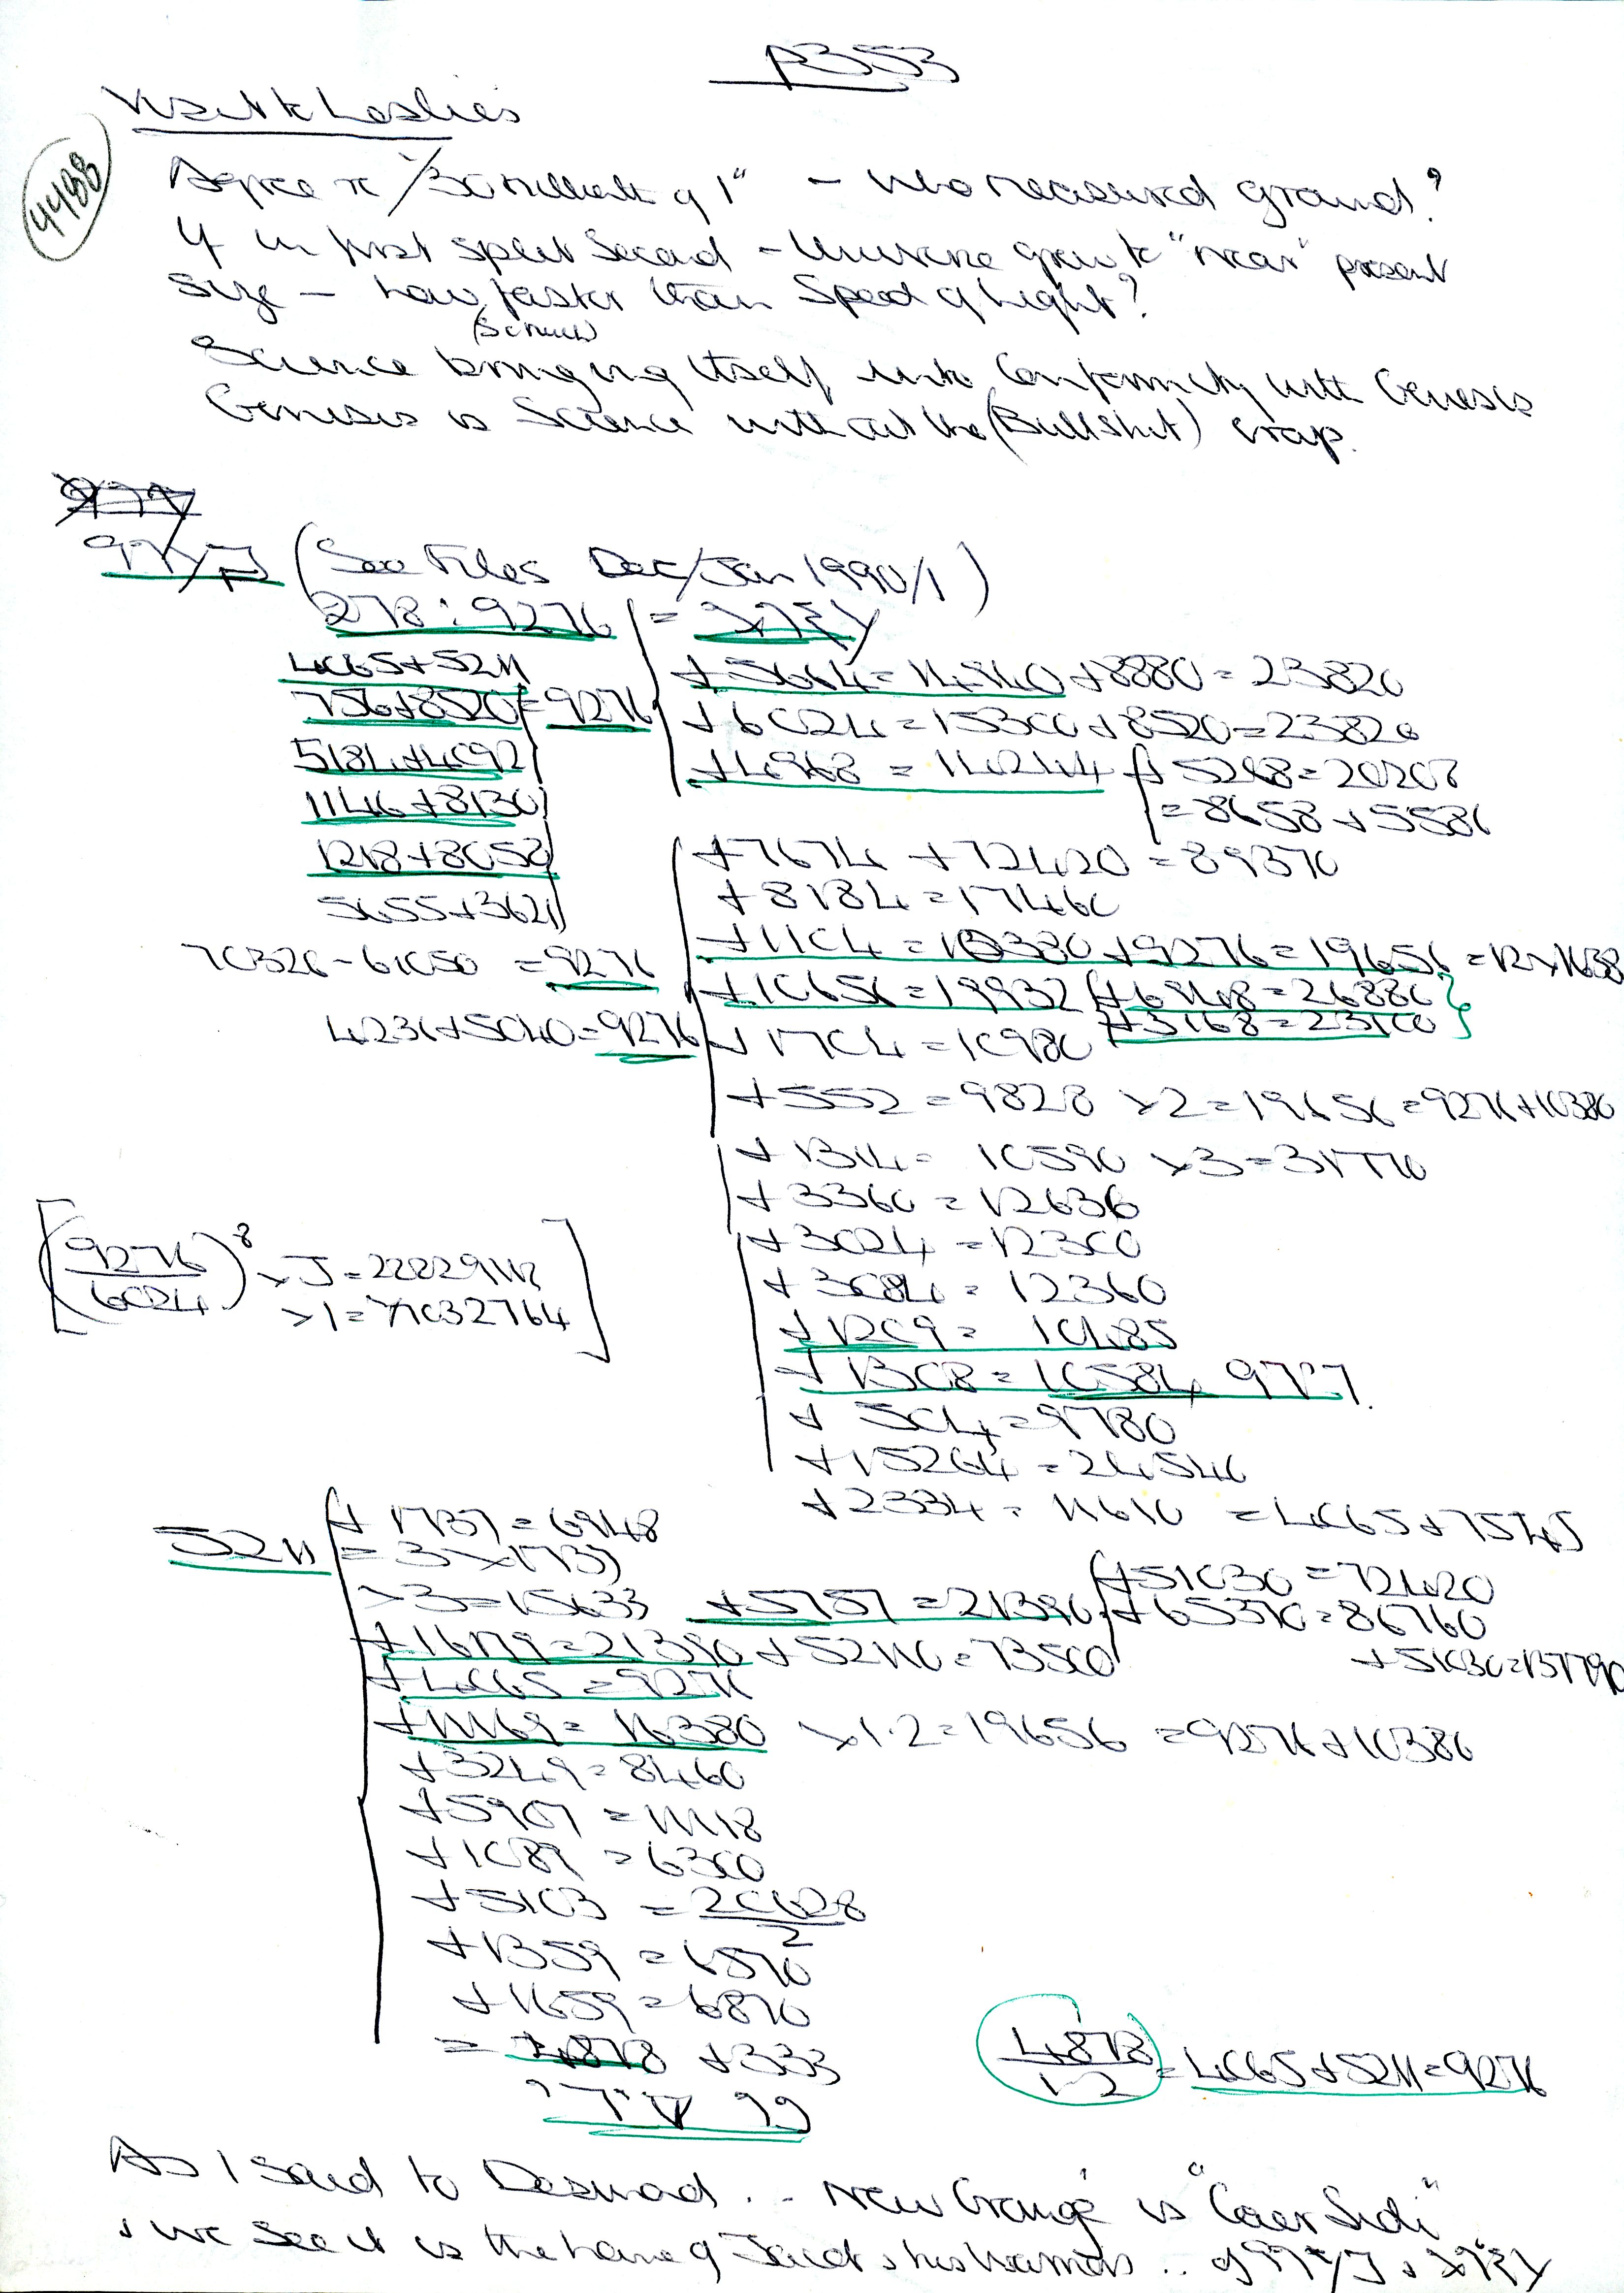 P353
Visit to Leslies
4498
Agree re 1" - Who measured ground?
If in first split second - Universe grew to "near" present
size - how faster than Speed of Light?
(Schroeder)
Science bringing itself into Conformity with Genesis
Genesis is Science without the (Bullshit) crap.
(See Files Dec/Jan 1990/1)
278 : 9276 =
4065+5211
756+8520 = 9276
5184+4092
1146+8130
1218+8058
5655+3621
70326-61050 = 9276
4236+5040=9276
+5664=14940+8880=23820
+6024=15300+8520=23820
+4968=14244 +5268=20208
=8658+5586
+7674 +72420=89370
+8184=17460
+1104=10380+9276=19656=12×1638
+10656=19932 +6948=26880
+3168=23100
+1704=10980
+552=9828 ×2=19656=9276+10380
+1314=10590 ×3=31770
+3360=12636
+3024=12300
+3084=12360
+1209=10485
+1308=10584
+504=9780
+15264=24540
+2334=11610 =4065+7545
(9276/6024)⁸ ×J=22229112
×1=71032764
5211 +1737=6948
=3×1737
×3=15633 +5757=21390 +51030=72420
+65370=86760
+16179=21390+52110=73500
+51030=137790
+4065=9276
+11169=16380 ×1.2=19656 =9276+10380
+3249=8460
+5907=11118
+1089=6300
+5103=20628/2
+1359=6570
+1659=6870
=4878+333
4878/1-2 =4065+5211=9276
As I said to Desmond .. New Grange is "Caer Sidi"
& we see it is the home of